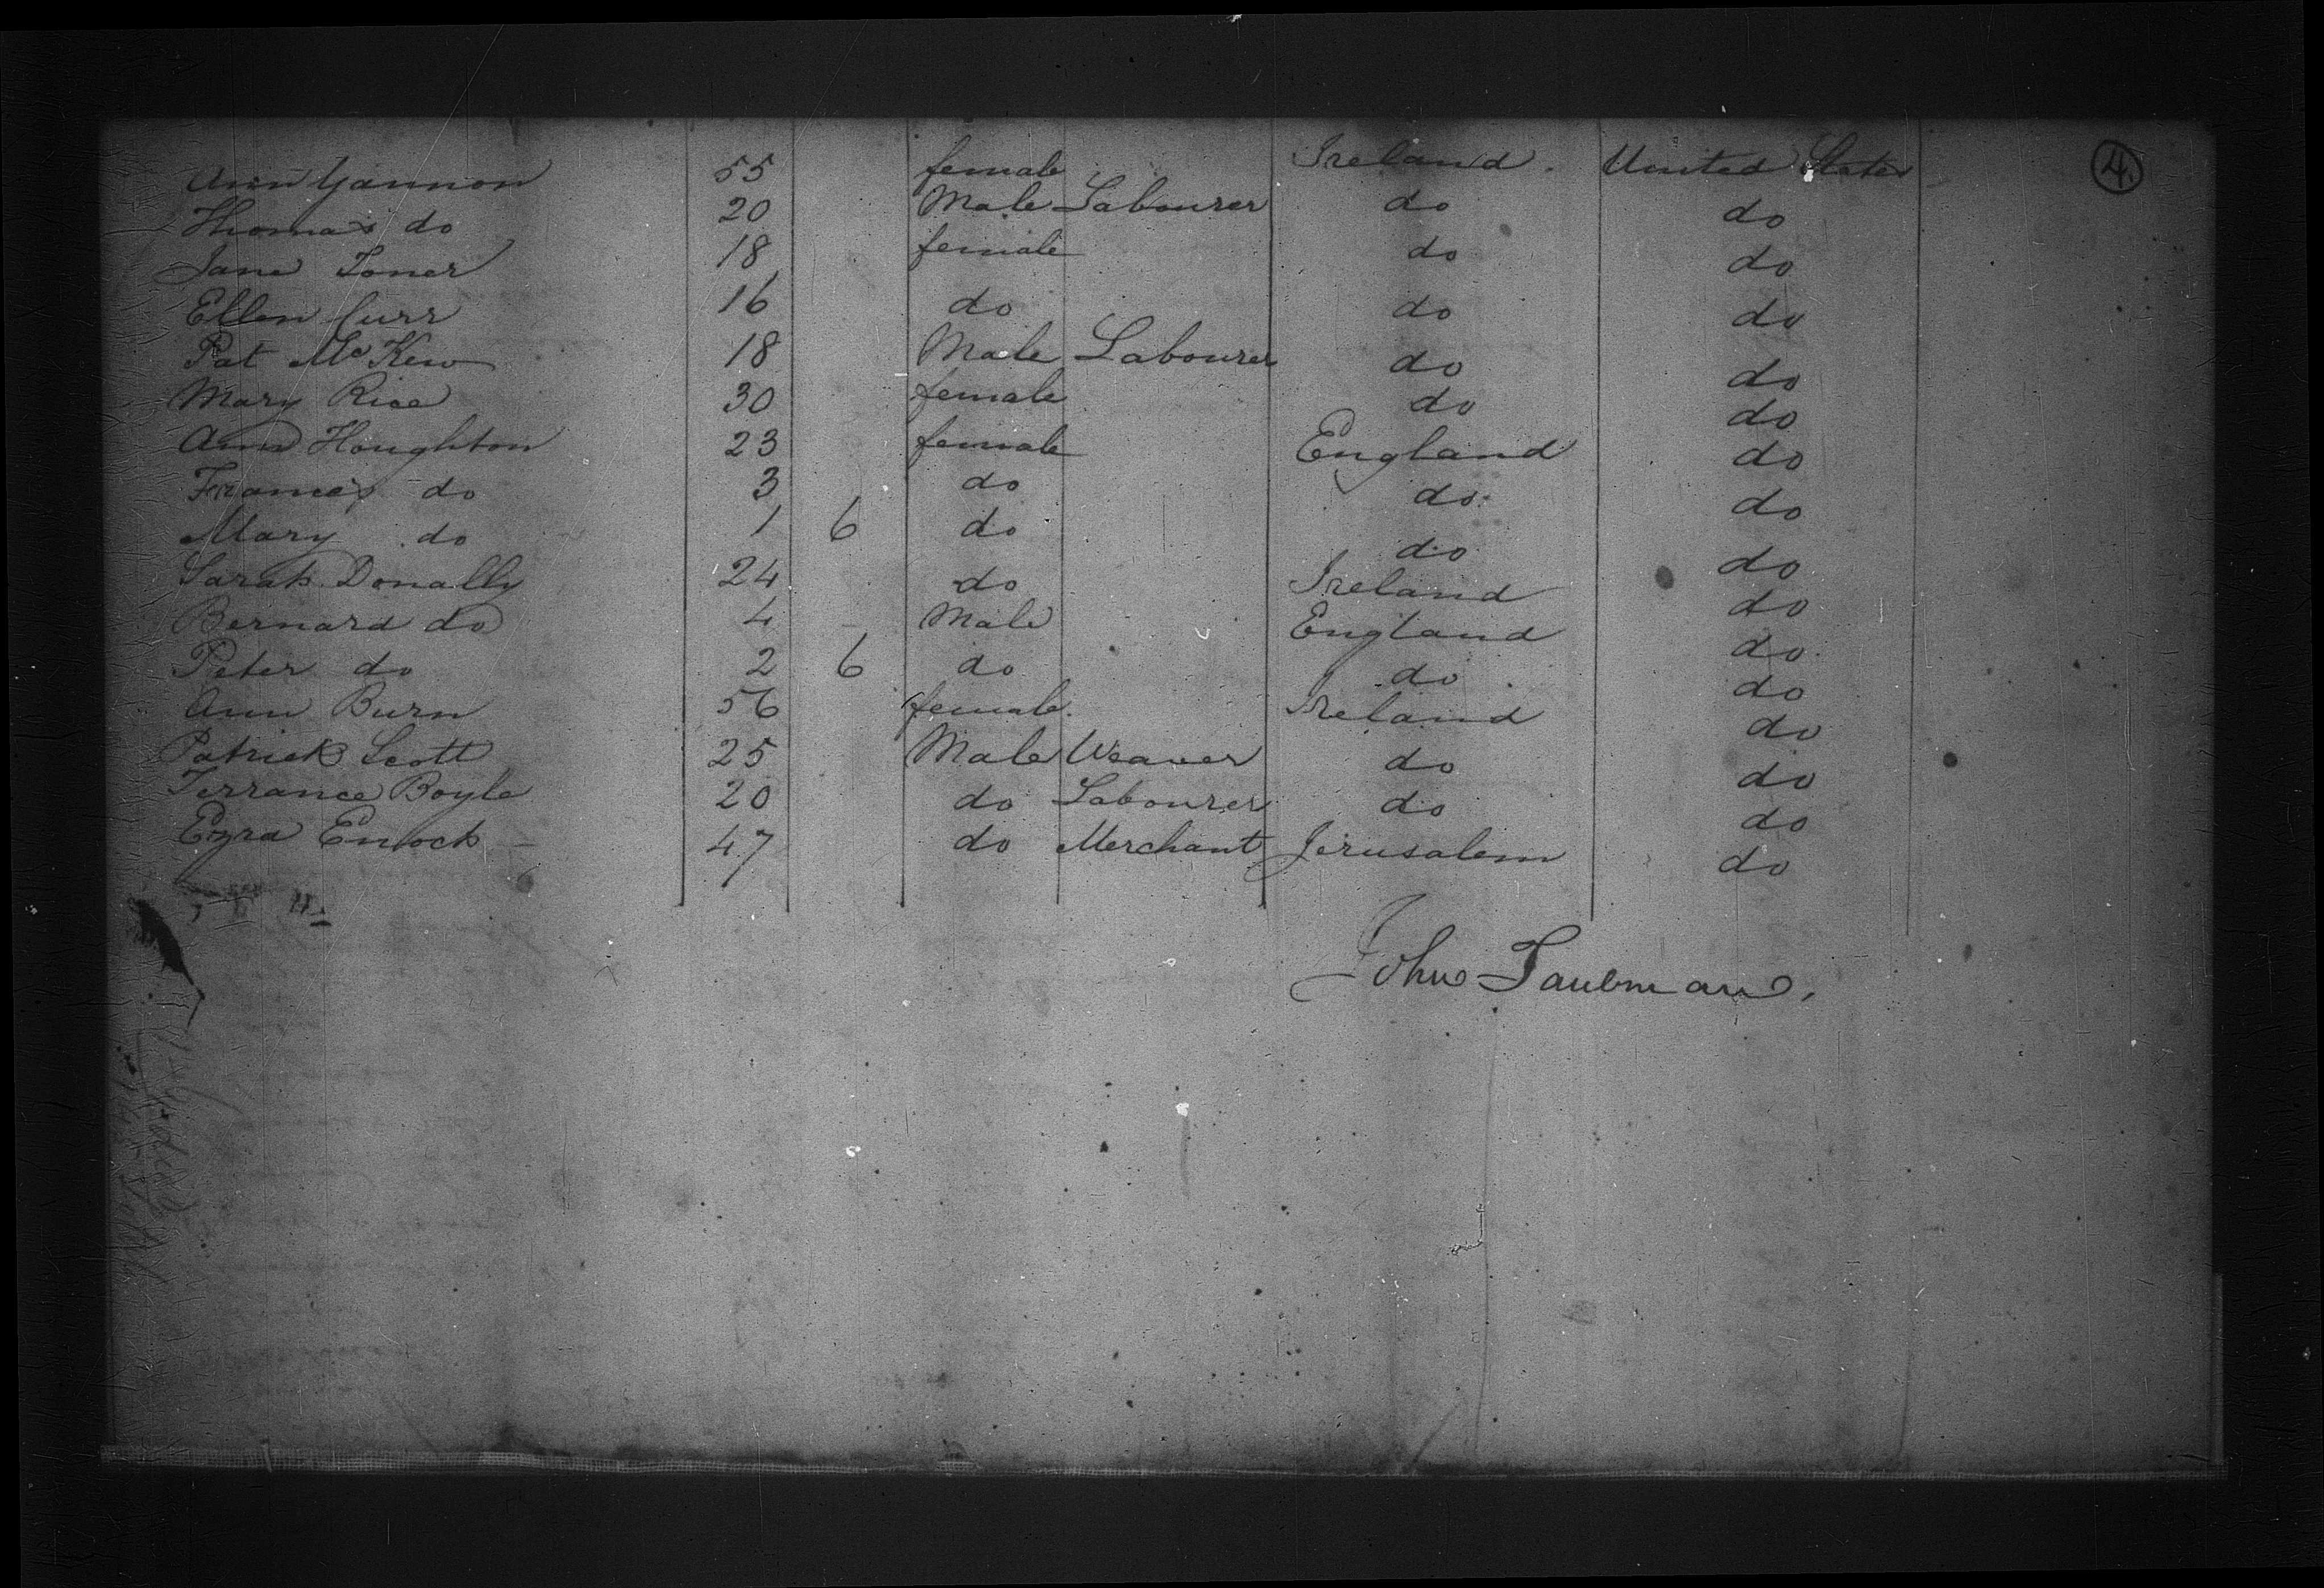 4.
Ann Gannon 55 female Ireland. United States
Thomas do 20 Male Labourer do do
Jane Toner 18 female do do
Ellen Curr 16 do do do
Pat McKew 18 Male Labourer do do
Mary Rice 30 female do do
Ann Houghton 23 female England do
Frances do 3 do do do
Mary do 1 6 do do do
Sarah Donally 24 do Ireland do
Bernard do 4 Male England do
Peter do 2 6 do do do
Ann Burn 56 female Ireland do
Patrick Scott 25 Male Weaver do do
Terrance Boyle 20 do Labourer do do
Ezra Enoch 47 do Merchant Jerusalem do
John Taubman.